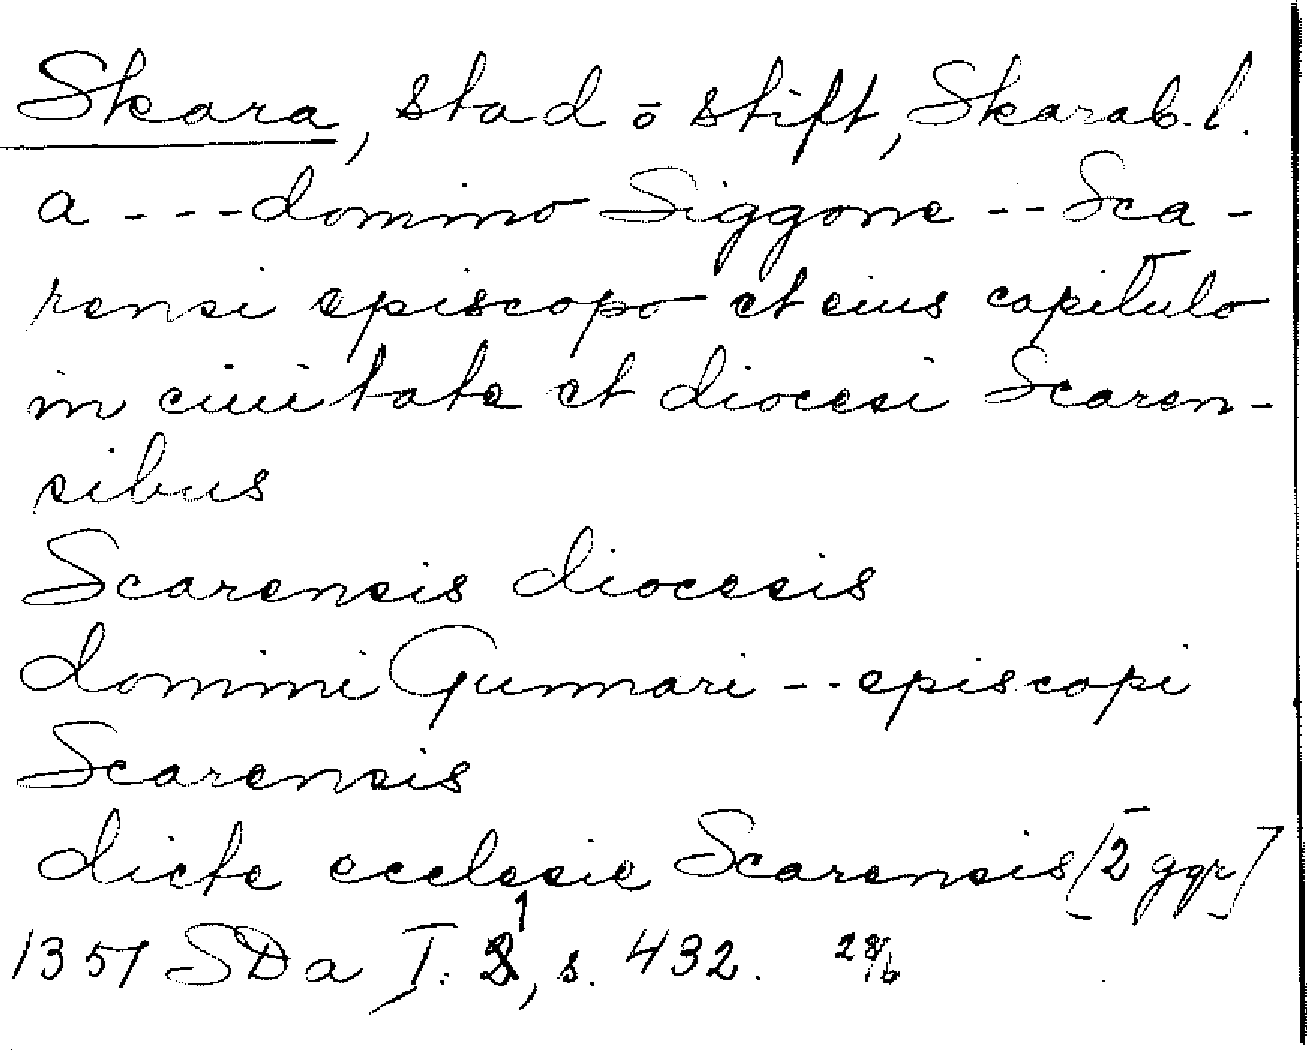 Skara, stad ō stift, Skarab. l.
a --- domino Siggone -- Sca-
rensi episcopo et eius capitulo
in ciuitate et diocesi Scaren-
sibus
Scarensis diocesis
domini Gunnari -- episcopi
Scarensis
dicte ecclesie Scarensis [2 ggr]
1357 SDa I: 1, s. 432. 28/6